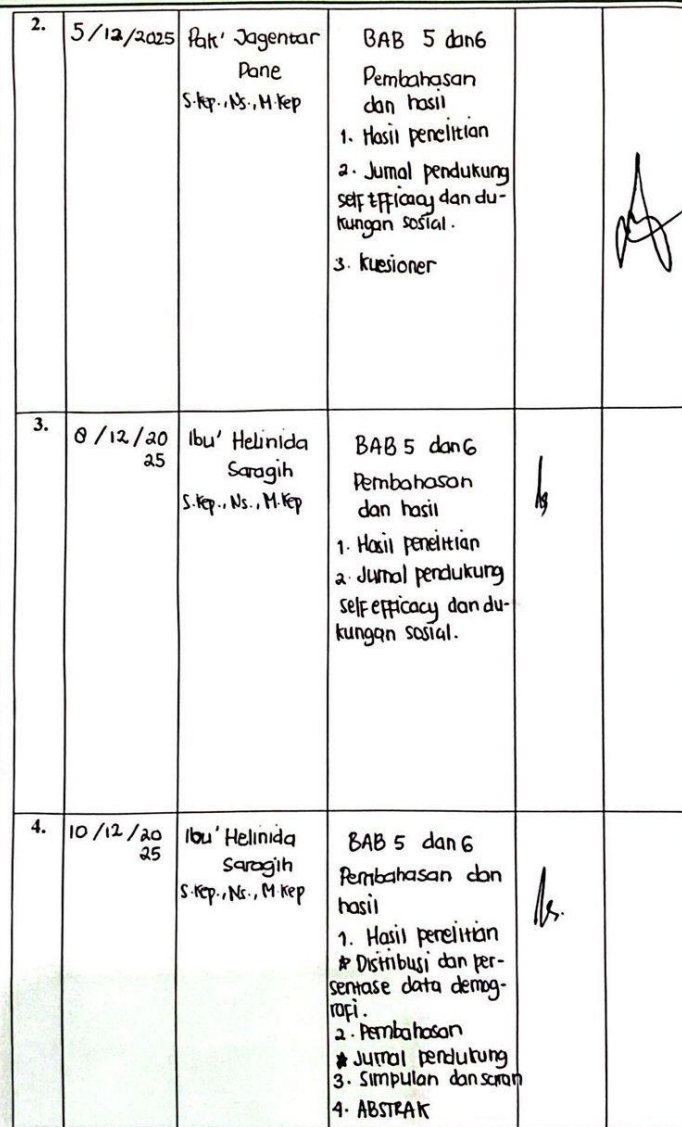 2.
5/12/2025
Pak' Jagentar
Pane
S.Kep., Ns., M.Kep
BAB 5 dan 6
Pembahasan
dan hasil
1. Hasil penelitian
2. Jurnal pendukung
self Efficacy dan du-
kungan sosial.
3. kuesioner
3.
8/12/20
25
Ibu' Helinida
Saragih
S.Kep., Ns., M.Kep
BAB 5 dan 6
Pembahasan
dan hasil
1. Hasil penelitian
2. Jurnal pendukung
self efficacy dan du-
kungan sosial.
4.
10/12/20
25
Ibu' Helinida
Saragih
S.Kep., Ns., M.Kep
BAB 5 dan 6
Pembahasan dan
hasil
1. Hasil penelitian
* Distribusi dan per-
sentase data demog-
rafi.
2. Pembahasan
* Jurnal pendukung
3. Simpulan dan saran
4. ABSTRAK